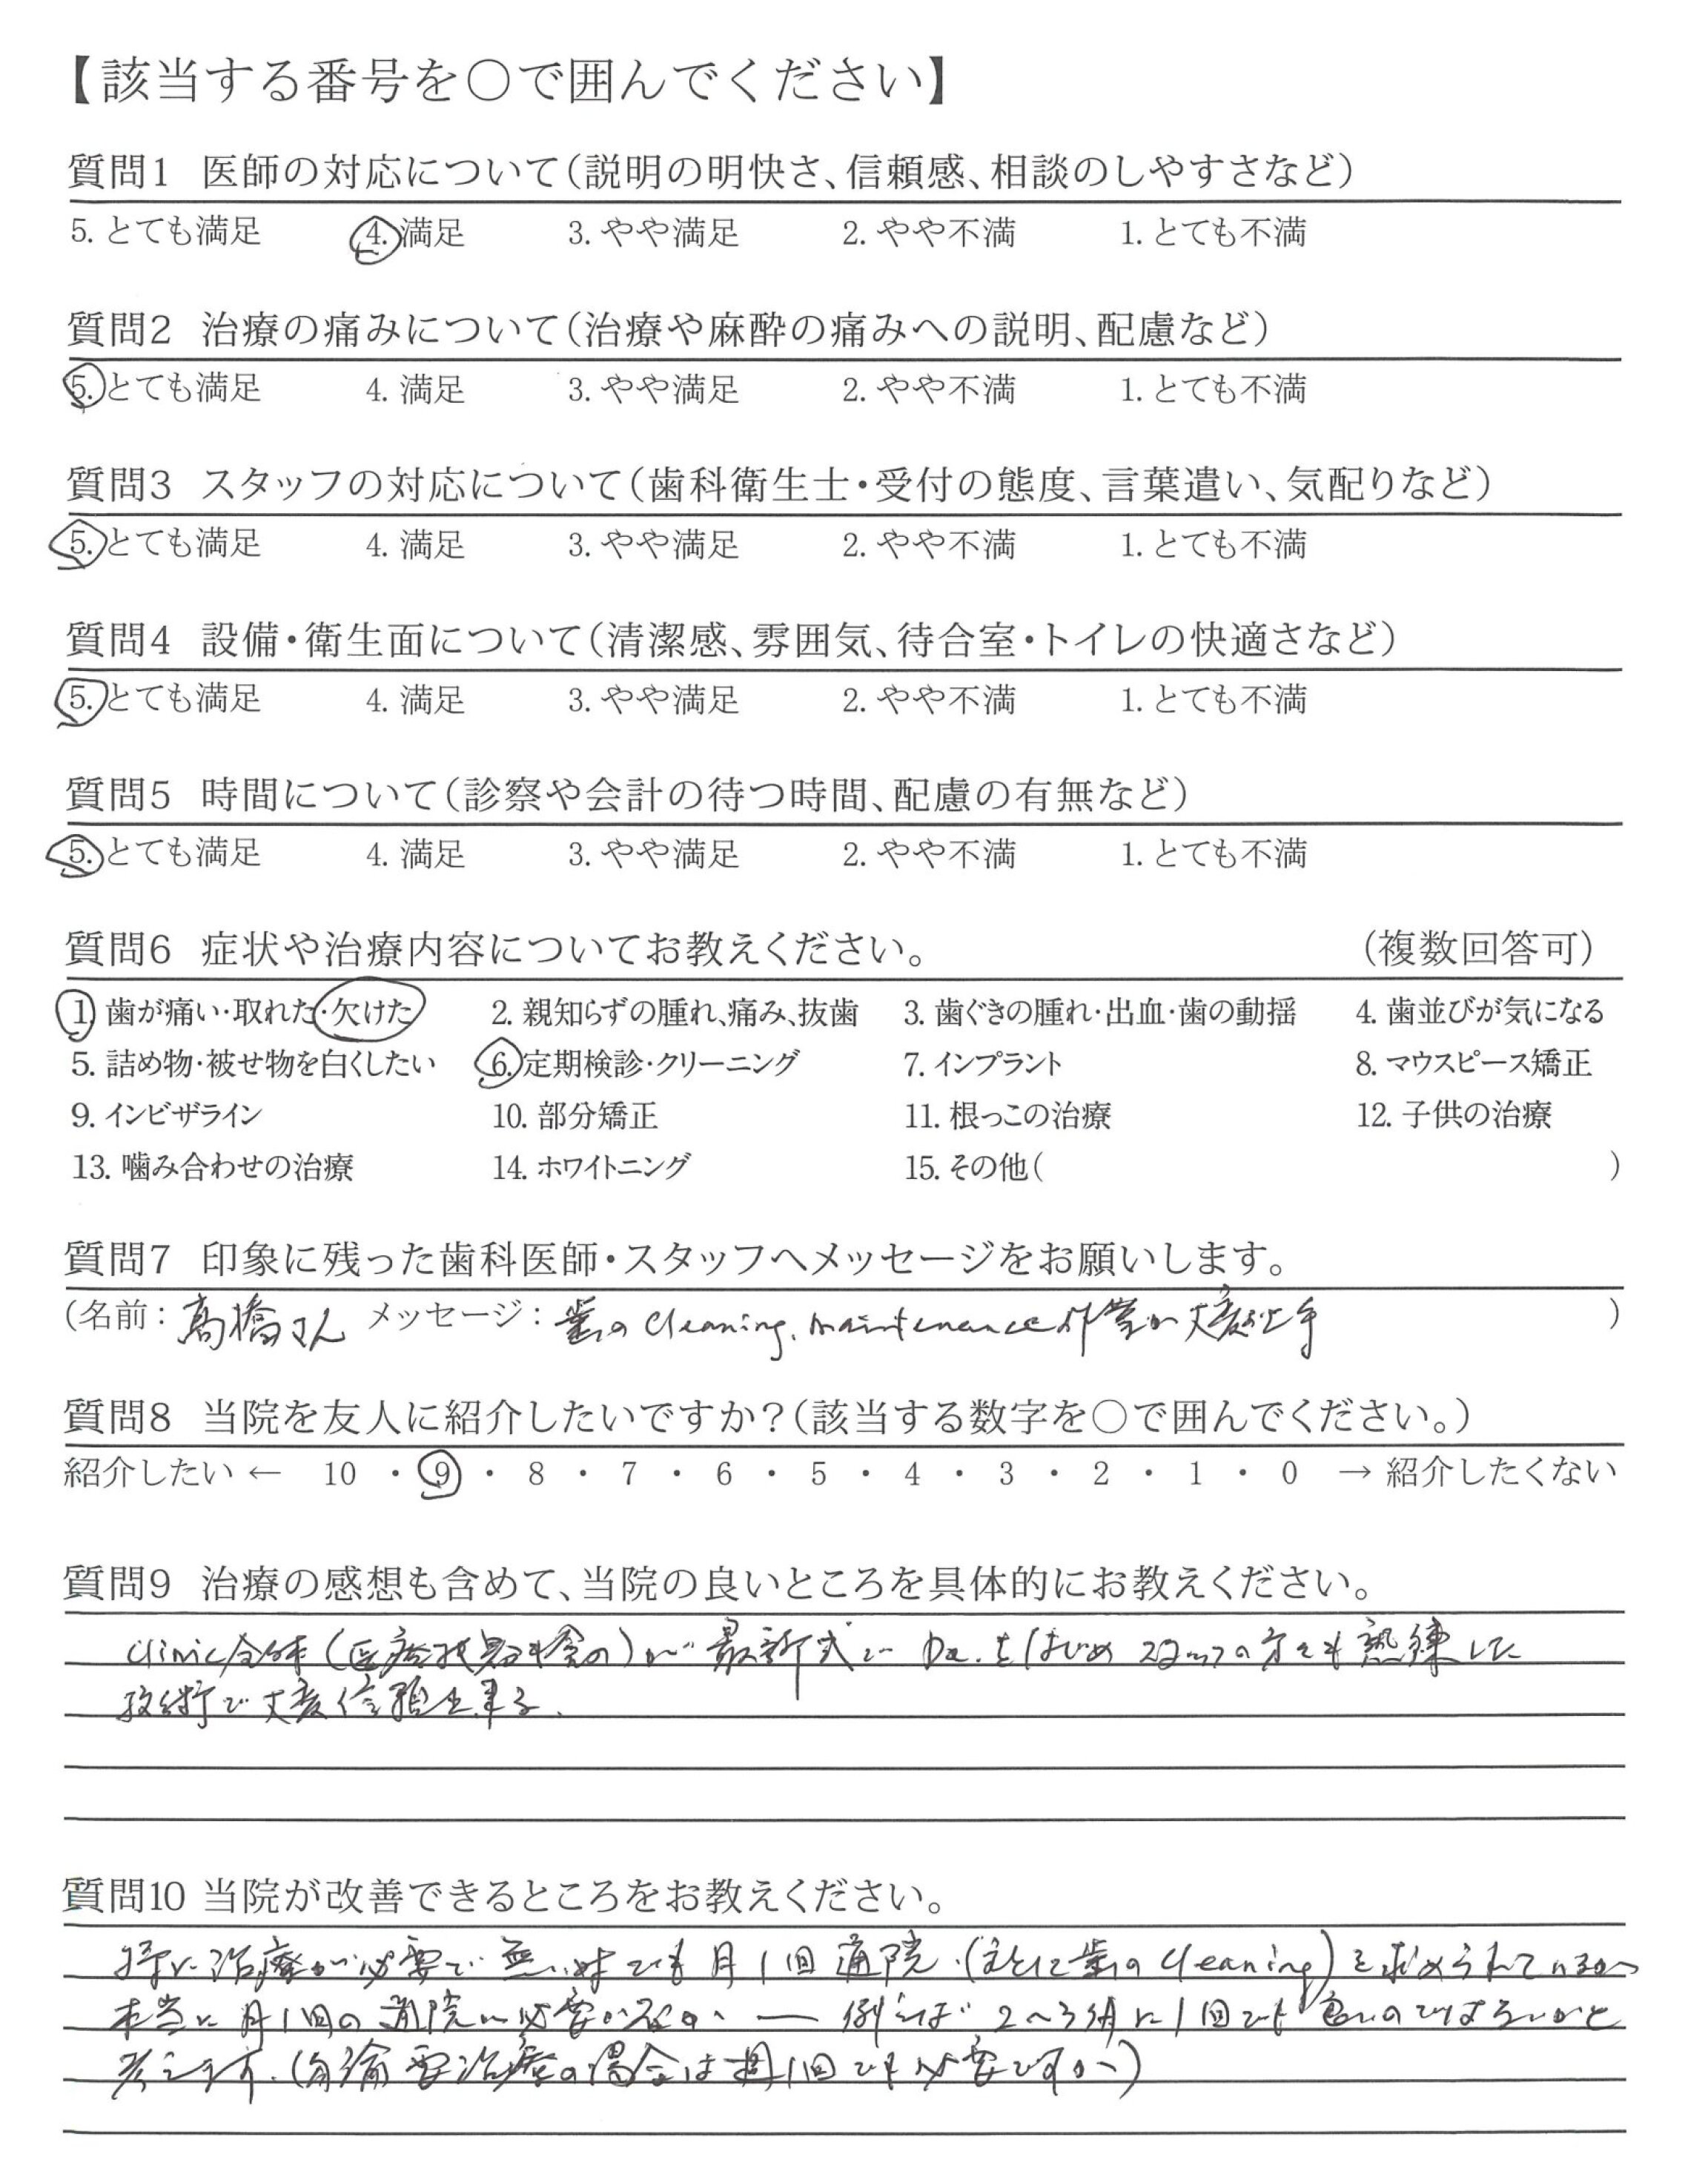 【該当する番号を○で囲んでください】
質問1 医師の対応について(説明の明快さ、信頼感、相談のしやすさなど)
5. とても満足 4. 満足 3. やや満足 2. やや不満 1. とても不満
質問2 治療の痛みについて(治療や麻酔の痛みへの説明、配慮など)
5. とても満足 4. 満足 3. やや満足 2. やや不満 1. とても不満
質問3 スタッフの対応について(歯科衛生士・受付の態度、言葉遣い、気配りなど)
5. とても満足 4. 満足 3. やや満足 2. やや不満 1. とても不満
質問4 設備・衛生面について(清潔感、雰囲気、待合室・トイレの快適さなど)
5. とても満足 4. 満足 3. やや満足 2. やや不満 1. とても不満
質問5 時間について(診察や会計の待つ時間、配慮の有無など)
5. とても満足 4. 満足 3. やや満足 2. やや不満 1. とても不満
質問6 症状や治療内容についてお教えください。 (複数回答可)
1. 歯が痛い・取れた・欠けた 2. 親知らずの腫れ、痛み、抜歯 3. 歯ぐきの腫れ・出血・歯の動揺 4. 歯並びが気になる
5. 詰め物・被せ物を白くしたい 6. 定期検診・クリーニング 7. インプラント 8. マウスピース矯正
9. インビザライン 10. 部分矯正 11. 根っこの治療 12. 子供の治療
13. 噛み合わせの治療 14. ホワイトニング 15. その他( )
質問7 印象に残った歯科医師・スタッフへメッセージをお願いします。
(名前: 髙橋さん メッセージ: 歯の cleaning, maintenance 作業が大変お上手 )
質問8 当院を友人に紹介したいですか?(該当する数字を○で囲んでください。)
紹介したい ← 10 ・ 9 ・ 8 ・ 7 ・ 6 ・ 5 ・ 4 ・ 3 ・ 2 ・ 1 ・ 0 → 紹介したくない
質問9 治療の感想も含めて、当院の良いところを具体的にお教えください。
clinic全体(医療機器も含め)が最新式で Dr.をはじめ スタッフの方々も熟練した
技術で大変信頼出来る.
質問10 当院が改善できるところをお教えください。
特に治療が必要で無い時でも月1回通院(主に歯の cleaning)を求められているが
本当に月1回の通院が必要か ― 例えば 2〜3ヶ月に1回でも良いのではないかと
考えます.(勿論要治療の場合は週1回でも必要ですが)